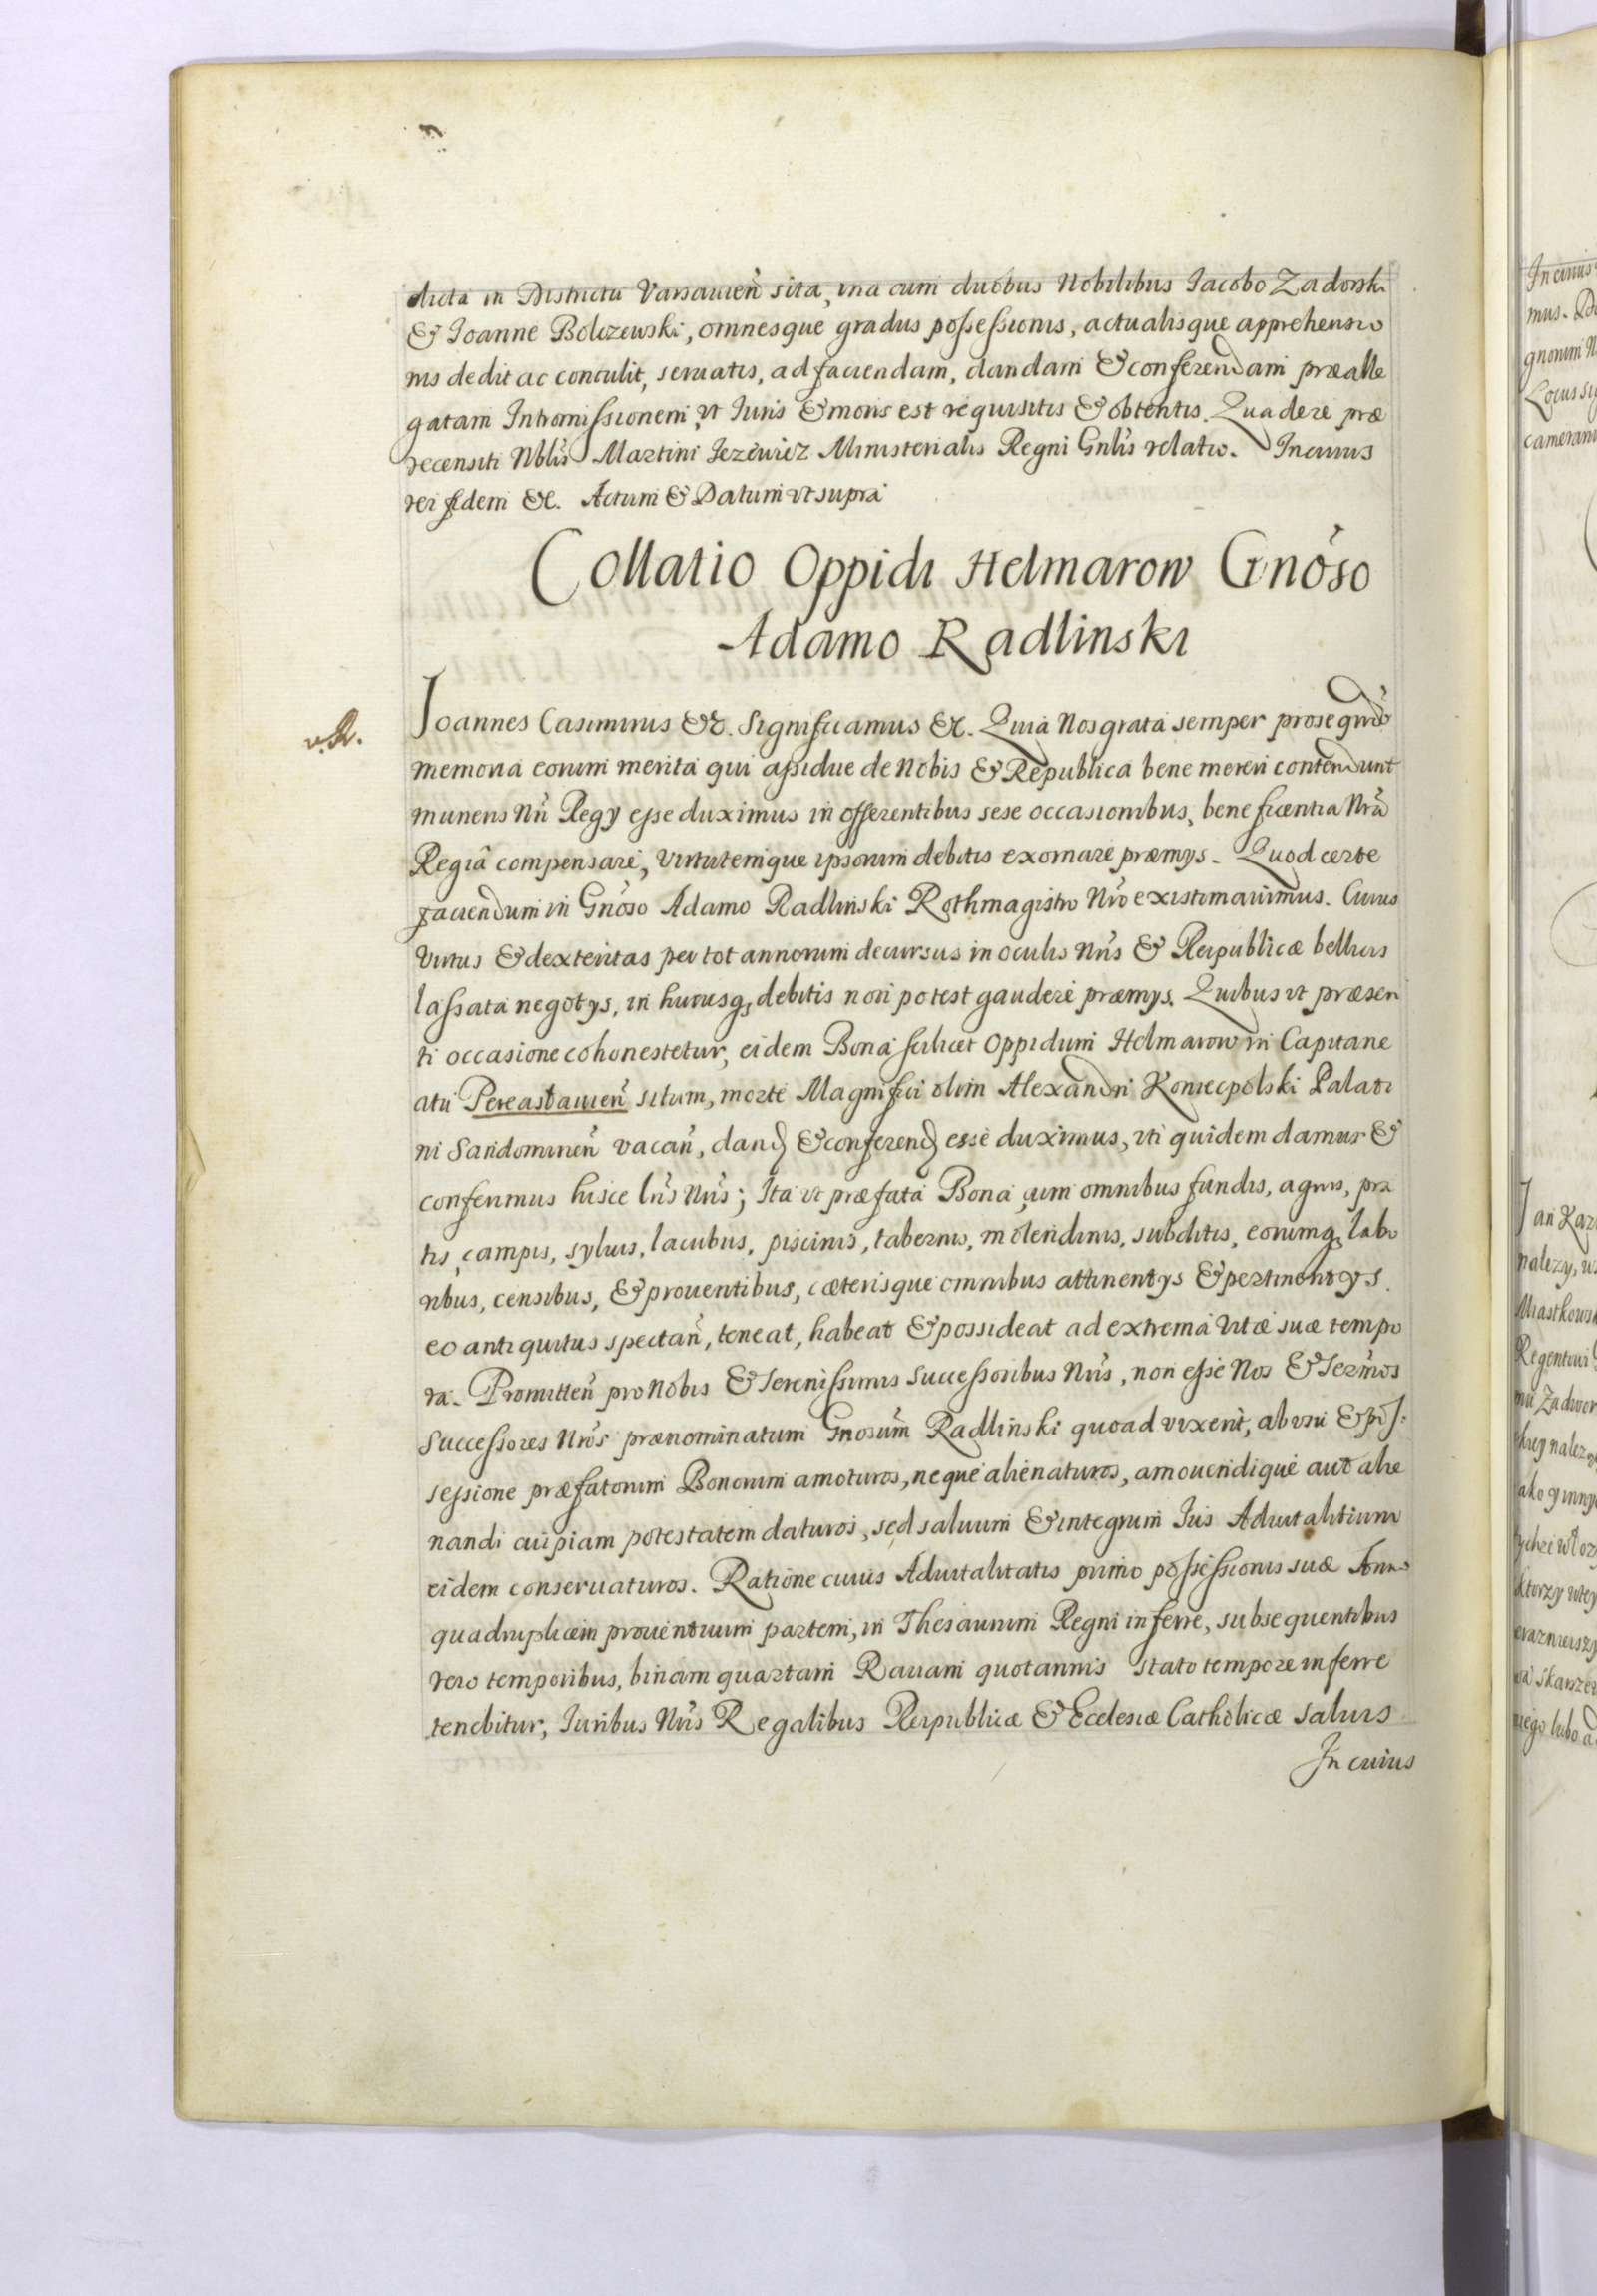 dicta in Districtu Varsauien̄ sita, vna cum duobus Nobilibus Iacobo Zadorski
& Joanne Bolczewski, omnesque gradus possessionis, actualisque apprehensio
nis dedit ac contulit, seruatis, ad faciendam, dandam & conferendam præalle
gatam Intromissionem, vt Iuris & moris est requisitis & obtentis. Qua de re præ
recensiti Nblīs Martini Iezewicz Ministerialis Regni Gnlīs relatio. In cuius
rei fidem &c. Actum & Datum vt supra
Collatio Oppidi Helmarow Gnōso
Adamo Radlinski
Joannes Casimirus &c. Significamus &c. Quia Nos grata semper prosequēdo
memoria eorum merita qui assidue de Nobis & Republica bene mereri contendunt
muneris Nrī Regy esse duximus in offerentibus sese occasionibus, beneficentia Nrā
Regiâ compensare, virtutemque ipsorum debitis exornare præmys. Quod certe
faciendum in Gnōso Adamo Radlinski Rothmagistro Nrō existimauimus. Cuius
virtus & dexteritas per tot annorum decursus in oculis Nrīs & Reipublicæ bellicis
lassata negotys, in hucusq; debitis non potest gaudere præmys. Quibus vt præsen
ti occasione cohonestetur, eidem Bona scilicet Oppidum Helmarow in Capitane
atu Pereaslauien̄ situm, morte Magnifici olim Alexandri Koniecpolski Palati
ni Sandomirien̄ vacan̄, dand & conferend esse duximus, vti quidem damus &
conferimus hisce Lrīs Nrīs; Ita vt præfata Bona cum omnibus fundis, agris, pra
tis, campis, syluis, lacubus, piscinis, tabernis, molendinis, subditis, eorumq; labo
ribus, censibus, & prouentibus, cæterisque omnibus attinentys & pertinentys
eo antiquitus spectan̄, teneat, habeat & possideat ad extrema vitæ suæ tempo
ra. Promitten̄ pro Nobis & Serenissimis Successoribus Nrīs, non esse Nos & Serm̄os
Successores Nrōs prænominatum Gnosūm Radlinski quoad vixerit, ab vsu & pos
sessione præfatorum Bonorum amoturos, neque alienaturos, amouendique aut alie
nandi cuipiam potestatem daturos, sed saluum & integrum Ius Aduitalitium
eidem conseruaturos. Ratione cuius Aduitalitatis primo possessionis suæ Anno
quadruplicem prouentuum partem, in Thesaurum Regni inferre, subsequentibus
vero temporibus, binam quartam Rauam quotannis stato tempore inferre
tenebitur, Iuribus Nrīs Regalibus Reipublicæ & Ecclesiæ Catholicæ saluis
In cuius